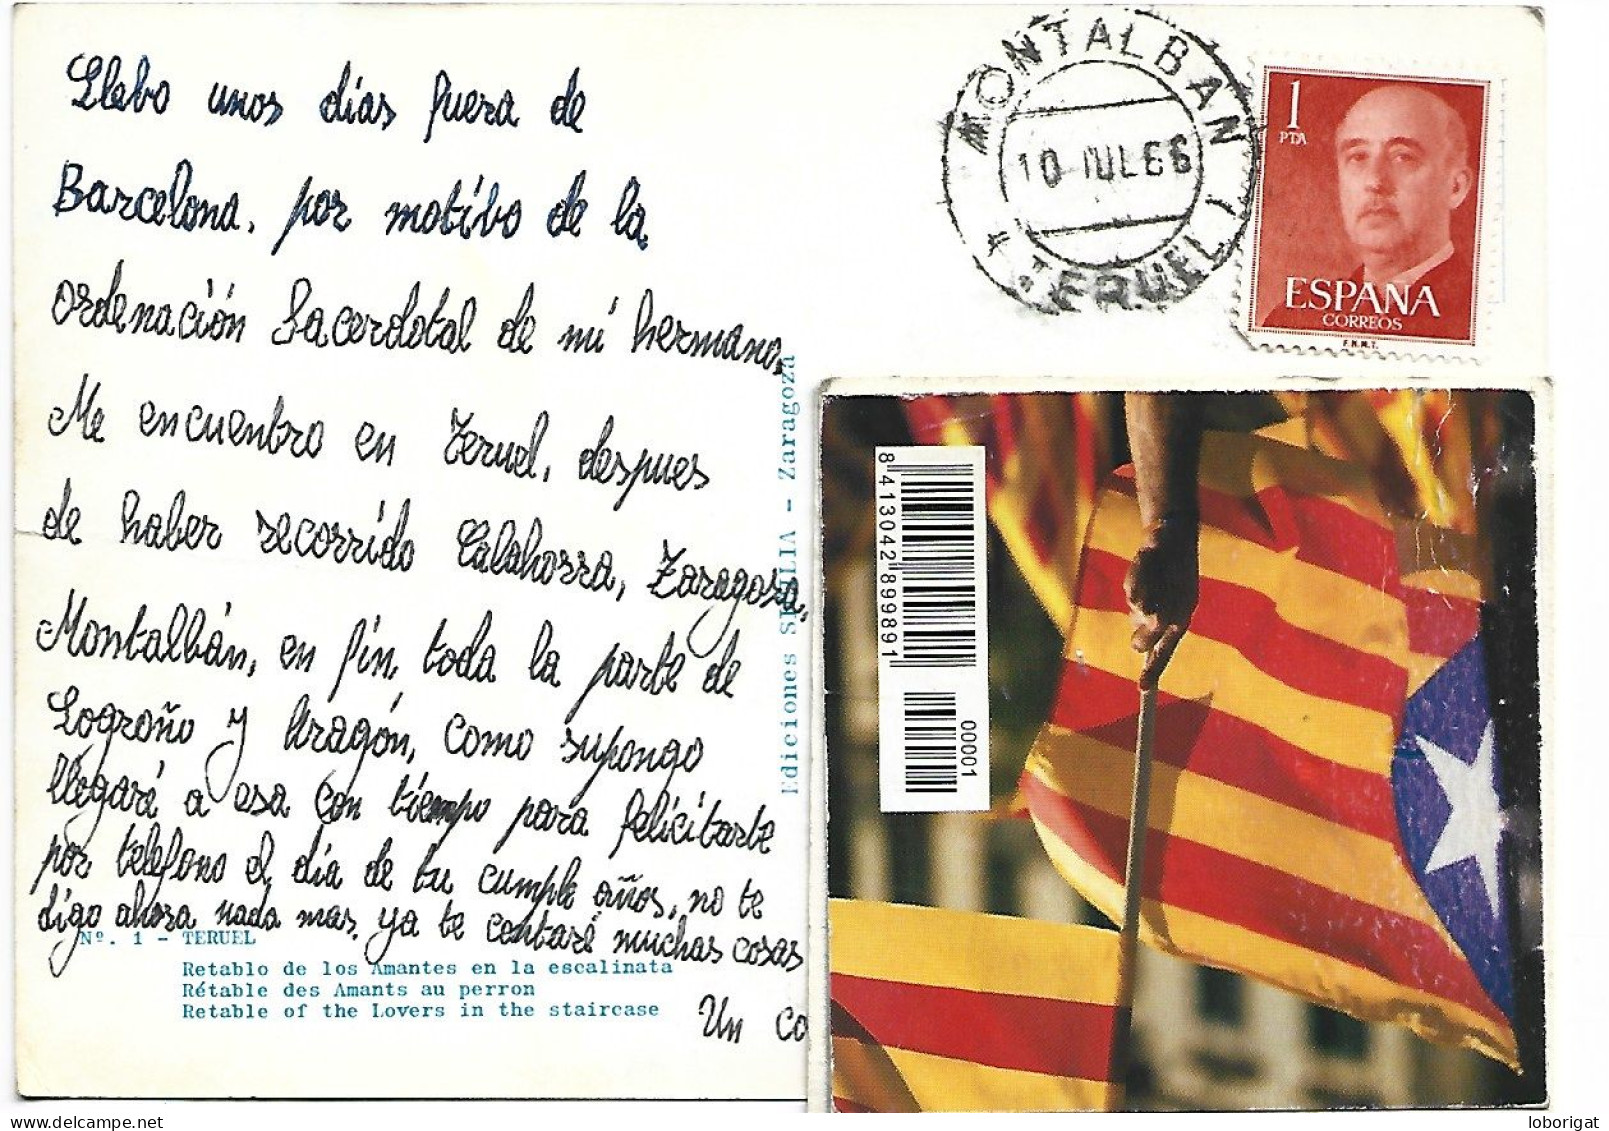 Llebo unos días fuera de
Barcelona, por motibo de la
ordenación Sacerdotal de mi hermano,
Me encuentro en Teruel, despues
de haber recorrido Calahorra, Zaragoza,
Montalbán, en fin, toda la parte de
Logroño y Aragón, como supongo
llegaré a esa con tiempo para felicitarte
por telefono el día de tu cumple años, no te
digo ahora nada mas, ya te contaré muchas cosas
Un co
Nº. 1 - TERUEL
Retablo de los Amantes en la escalinata
Rétable des Amants au perron
Retable of the Lovers in the staircase
Ediciones SICILIA - Zaragoza
MONTALBAN
10 JUL 66
(TERUEL)
1
PTA
ESPAÑA
CORREOS
F.N.M.T.
8 413042 899891
00001
www.delcampe.net
loborigat